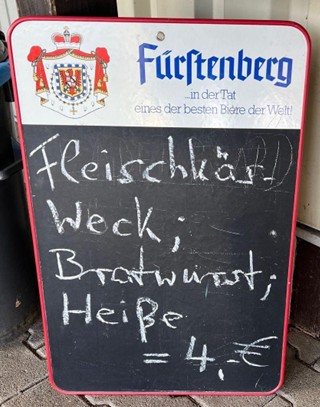 Fürstenberg
...in der Tat
eines der besten Biere der Welt!
Fleischkäs-
Weck;
Bratwurst;
Heiße
= 4,-€